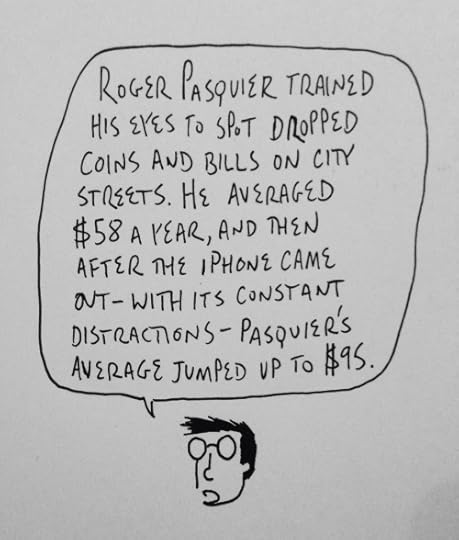 ROGER PASQUIER TRAINED
HIS EYES TO SPOT DROPPED
COINS AND BILLS ON CITY
STREETS. HE AVERAGED
$58 A YEAR, AND THEN
AFTER THE IPHONE CAME
OUT-WITH ITS CONSTANT
DISTRACTIONS-PASQUIER'S
AVERAGE JUMPED UP TO $95.